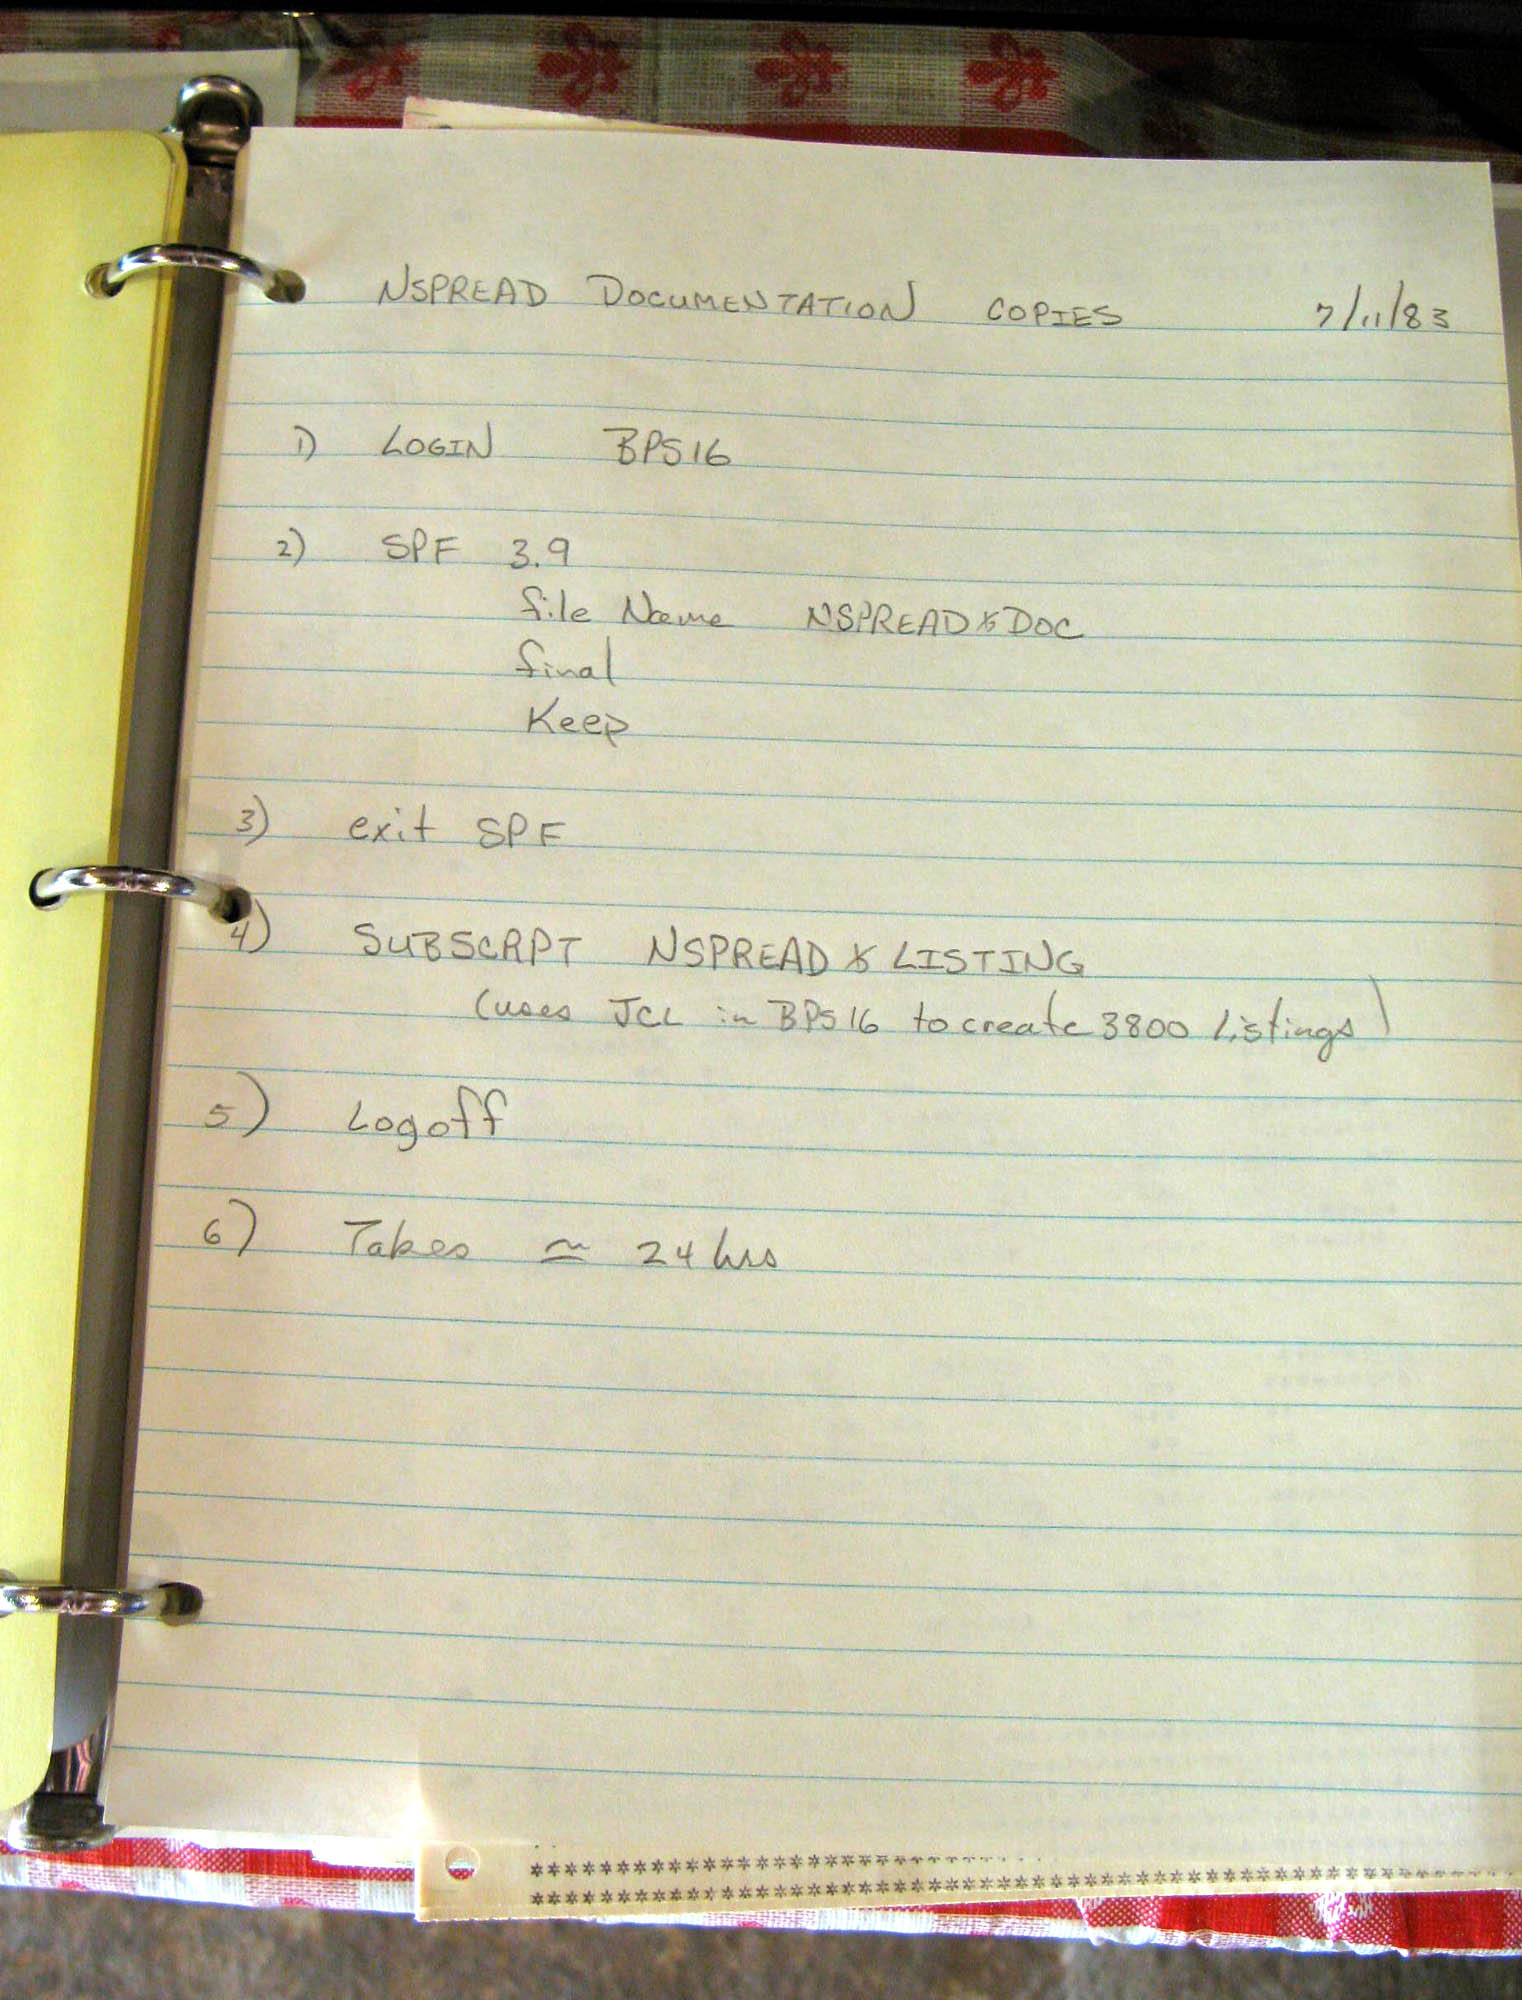 NSPREAD DOCUMENTATION COPIES 7/11/83
1) LOGIN BPS16
2) SPF 3.9
file Name NSPREAD*DOC
final
Keep
3) exit SPF
4) SUBSCRPT NSPREAD*LISTING
(uses JCL in BPS16 to create 3800 Listings)
5) Logoff
6) Takes ≃ 24 hrs